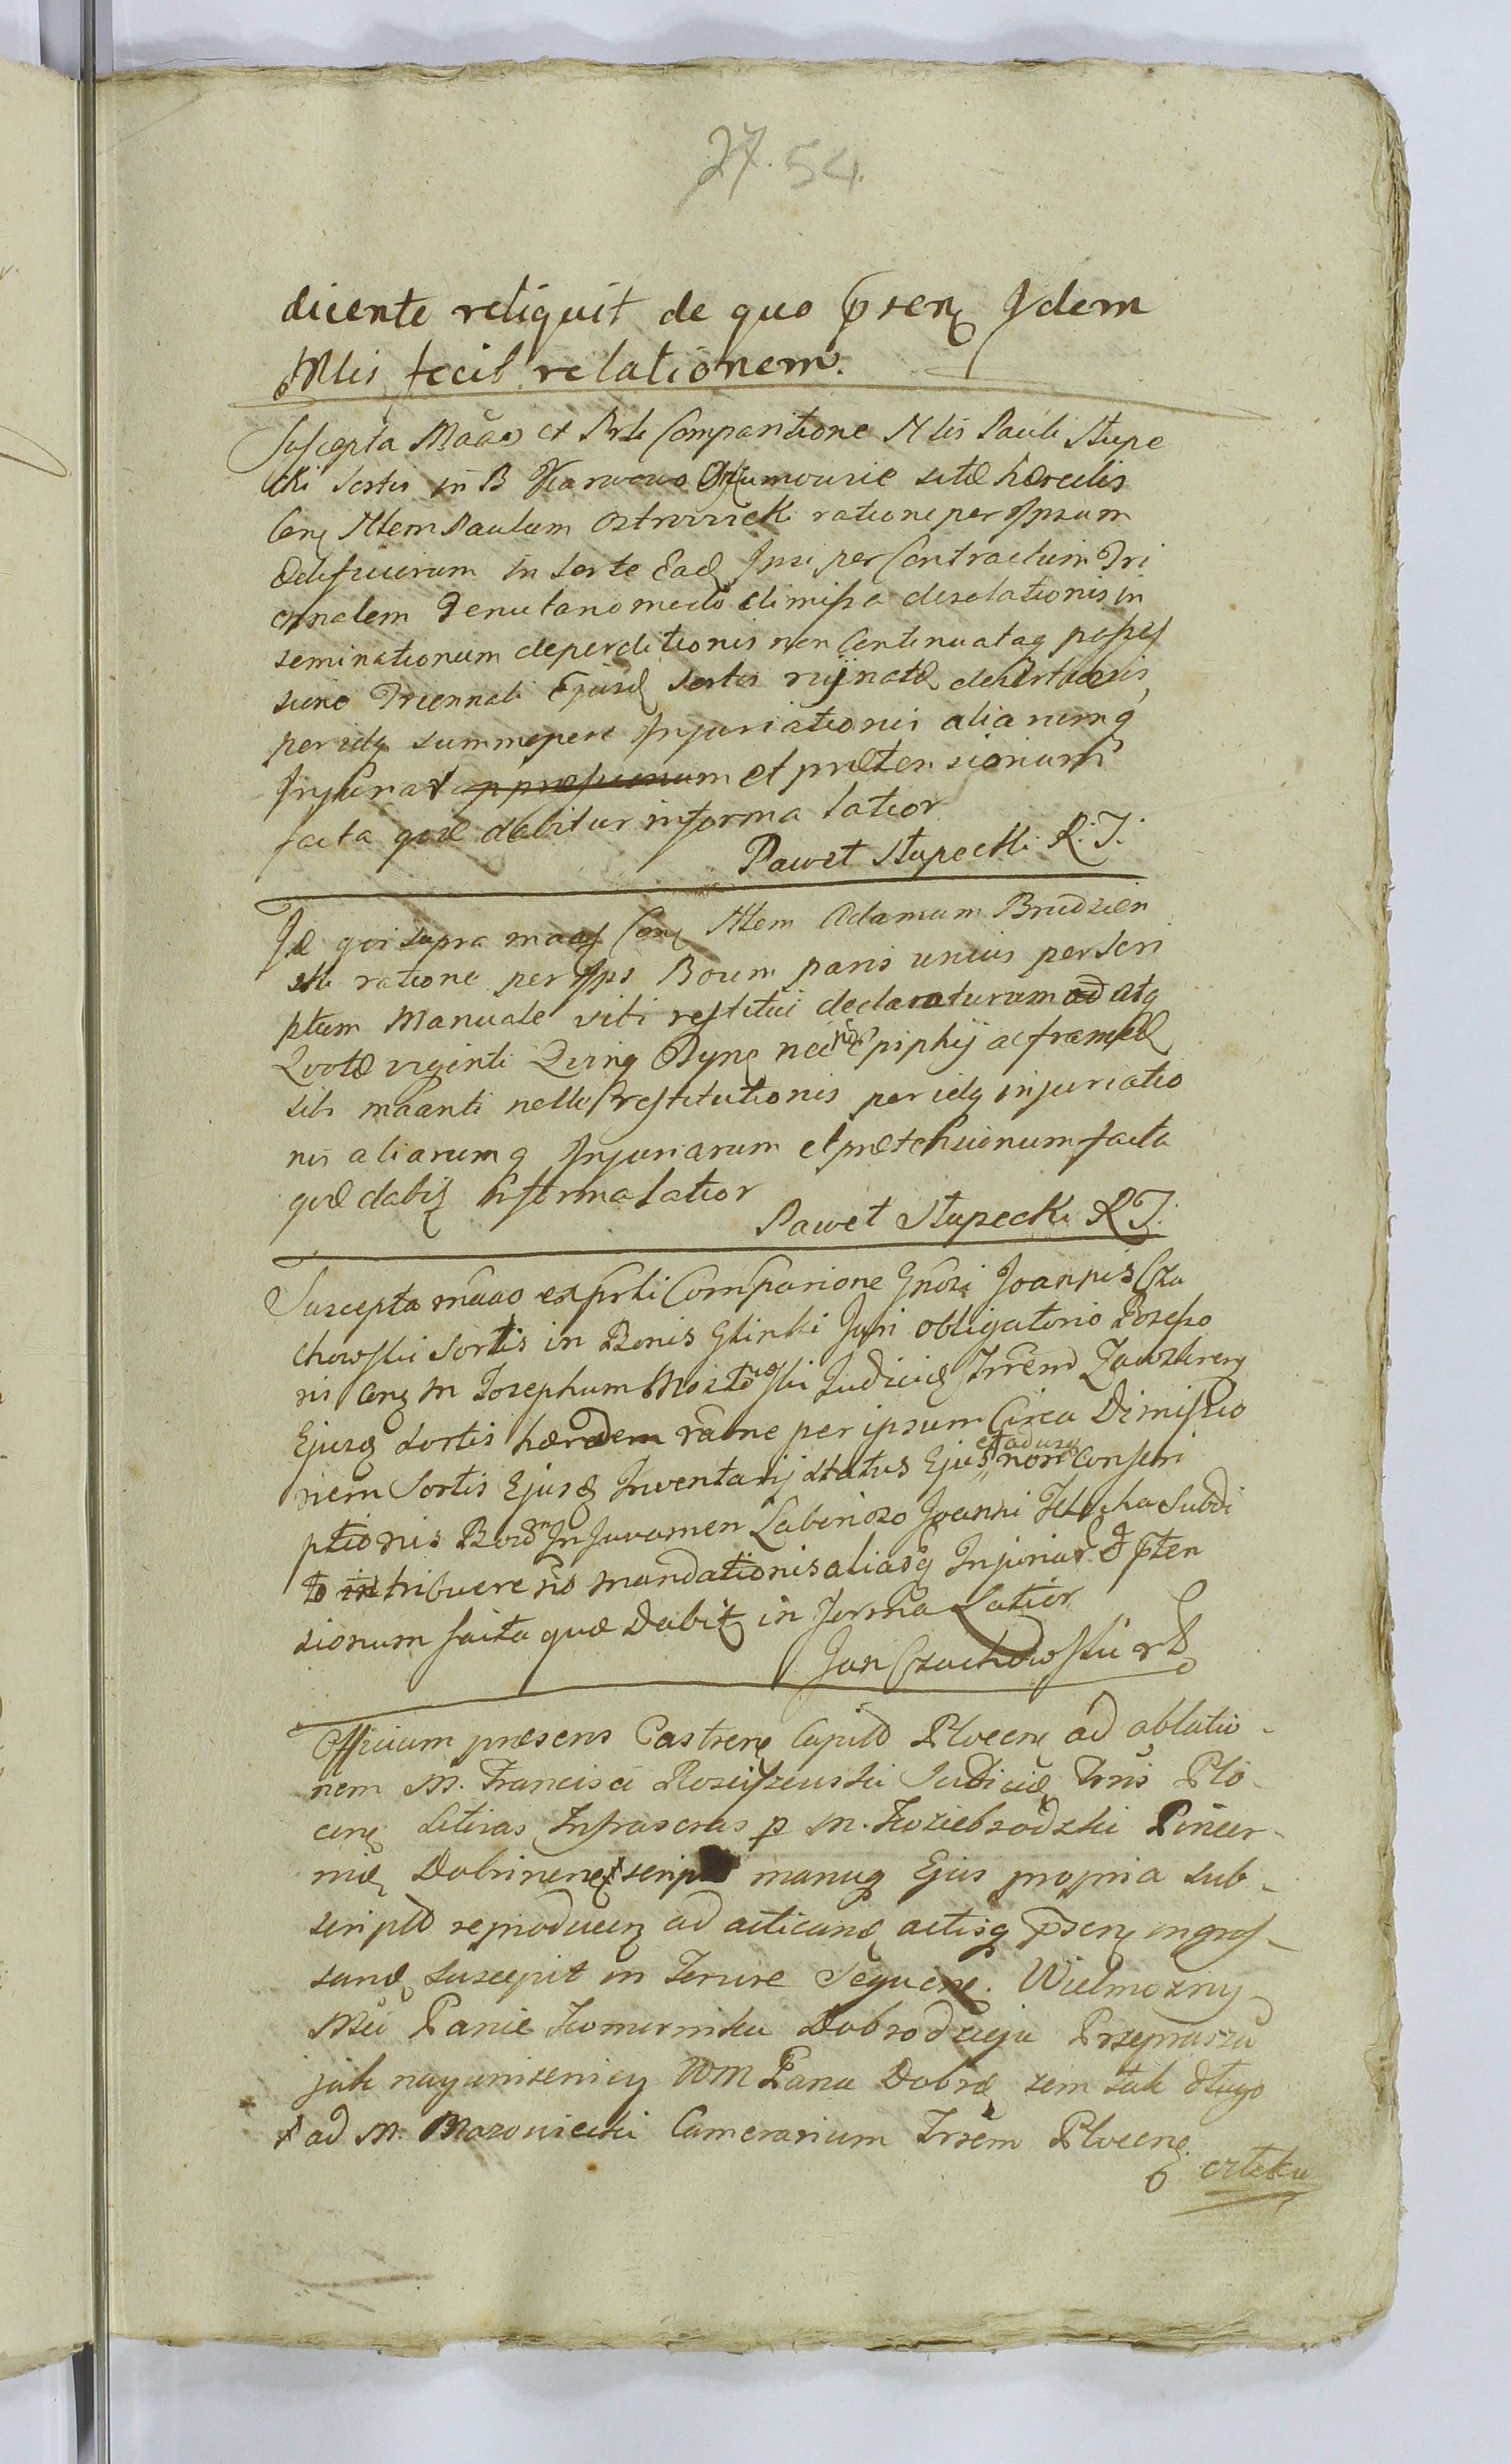 27. 54.
dicente reliquit de quo psenę Idem
Mlis fecit relationem.
Suscepta Maão et Prli Comparitione Nlis Pauli Słupe
cki Sortis in B Karwowo sitæ hæredis
Conę Nlem Paulum Ostrowick ratione per Ipsum
Ædificiorum in Sorte Eadę Ipsi per Contractum Tri
ennalem Tenutario modo dimissa desolationis in
seminationum deperditionis non Continuataq posses
sione Triennali Ejusdę Sortis rujnatæ desertationis
per idq summopere Injuriationis aliarumq
Injuriar et prætensionum
facta quæ dabitur in forma latior
Paweł Słupecki R: T:
Id qui supra maas Conę Nlem Adamum Brudzien
ski ratione per Ips Boum paris unius per Scri
ptum Manuale sibi restitui declaraturum ad atq
Quotæ viginti Quinq nec Epiphij ac frameæ
sibi maanti restitutionis per idq injuriatio
nis aliarumq Injuriarum et prætensionum facta
quæ dabitę in forma latior
Paweł Słupecki R T.
Suscepta maao ex prli Comparione Gnosi Joannis Cza
chowski Sortis in Bonis Glinki Juri obligatorio Posesso
ris Conę M Josephum Mosto wski Judicię Trrem Zawskrenę
Ejusdę Sortis hæredem raõne per ipsum Circa Dimissio
nem Sortis Ejusdę Inventarij Status Ejus et ad usu non Conscri
ptionis In Juvamen Laborioso Joanni Subdi
to in tribuere mandationis aliarq Injuriar et pten
sionum facta quæ Dabitę in forma Latior
Jan Czachowski
Officium præsens Castrenę Capitlo Plocenę ad oblatio-
nem M. Francisci Rosciszewski Judicię Trris Plo-
cenę Literas Infrascras p M. Koziebrodzki Pincer-
nię Dobrinenę script manuq Ejus propria sub-
scriptas reproducenę ad acticandę actisq psenę ingros-
sandę suscepit in Tenore Sequenę. Wielmozny
Mci Panie Komorniku Dobrodzieju Przepraszam
jak nayunizeniey WM Pana Dobrę zem tak długo
ad M. Mazowiecki Camerarium Trrem Plocenę
czleku